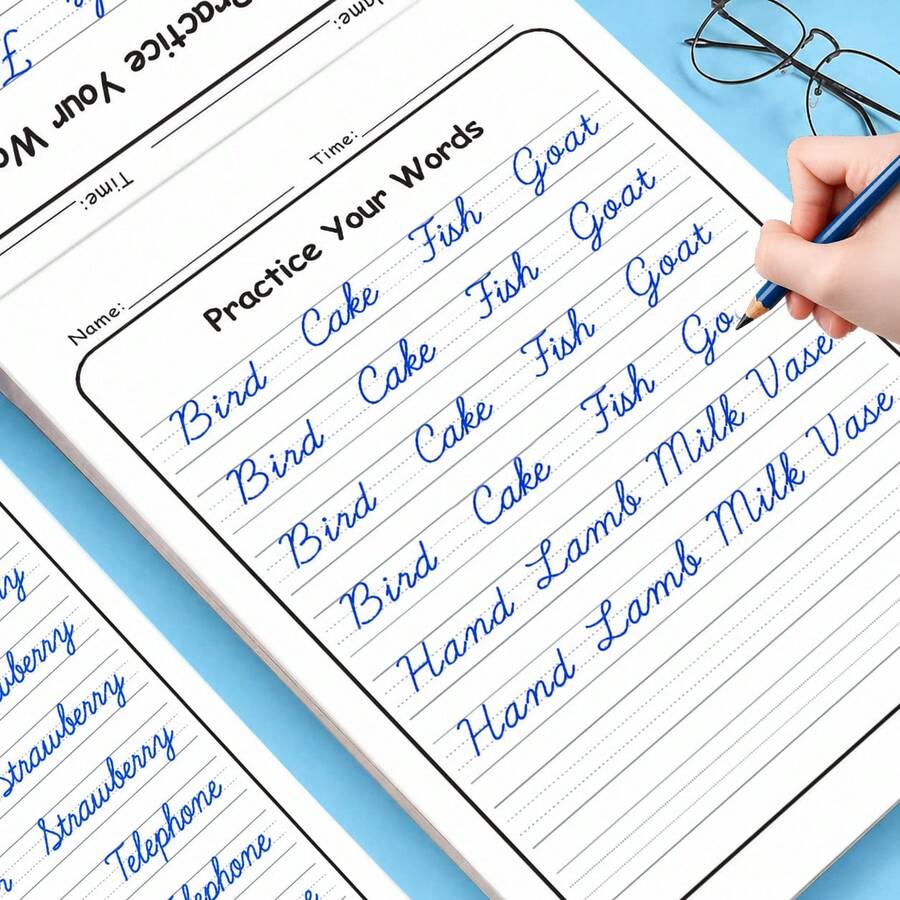 Practice Your
Time:
Name:
Name:
Time:
Practice Your Words
Bird Cake Fish Goat
Bird Cake Fish Goat
Bird Cake Fish Goat
Bird Cake Fish Go
Hand Lamb Milk Vase
Hand Lamb Milk Vase
Strawberry
Strawberry
Telephone